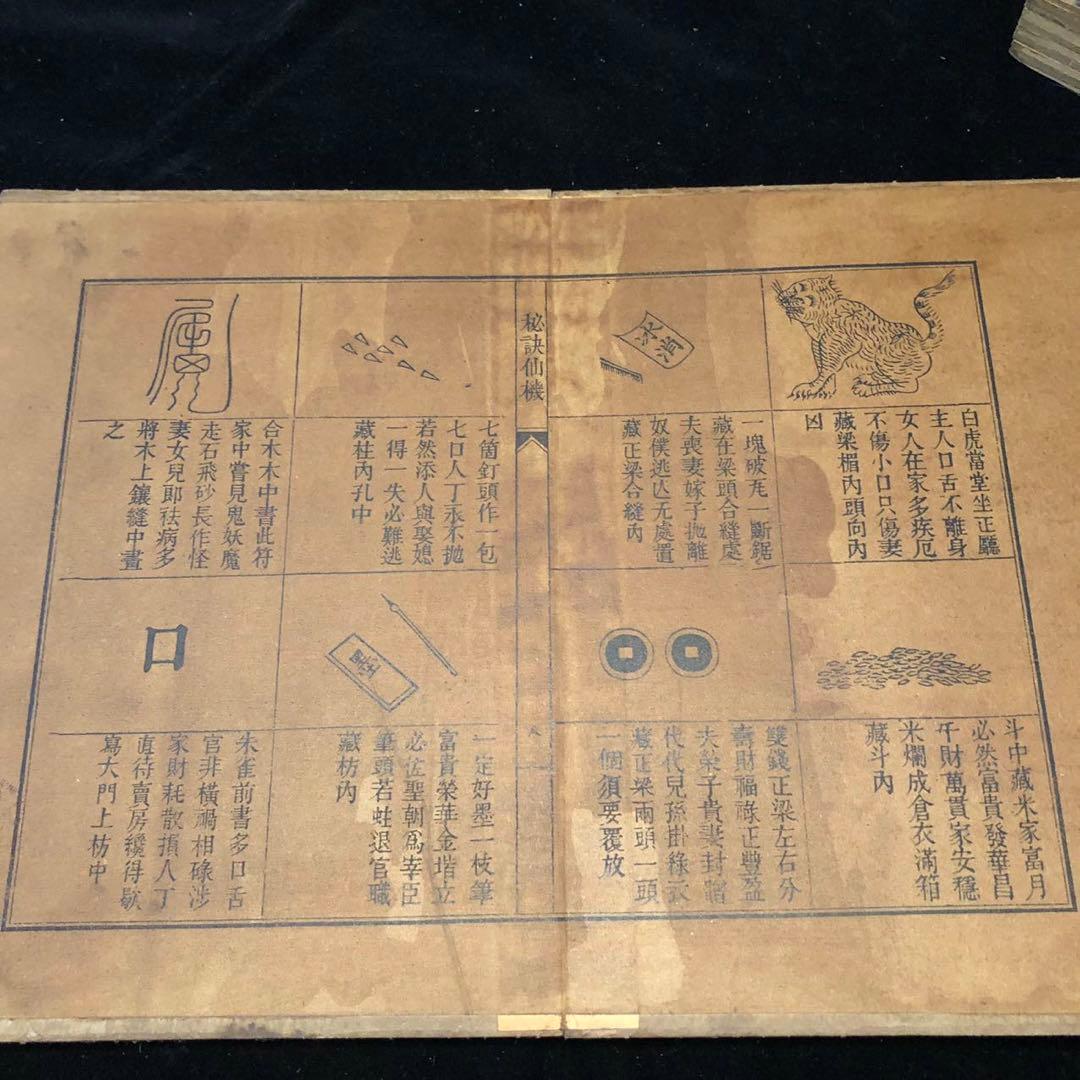 白虎當堂坐正廳
主人口舌不離身
女人在家多疾厄
不傷小口只傷妻
藏梁楣內頭向內
凶
氷消
一塊破瓦一斷鋸
藏在梁頭合縫處
夫喪妻嫁子抛離
奴僕逃亾无處置
藏正梁合縫內
斗中藏米家富月
必然富貴發華昌
千財萬貫家安穩
米爛成倉衣滿箱
藏斗內
雙錢正梁左右分
壽財福祿正豐盈
夫榮子貴妻封誥
代代兒孫掛綠衣
藏正梁兩頭一頭
一個須要覆放
秘訣仙機
八
七箇釘頭作一包
七口人丁永不抛
若然添人與娶媳
一得一失必難逃
藏柱內孔中
合木木中書此符
家中嘗見鬼妖魔
走石飛砂長作怪
妻女兒郎祛病多
將木上鑲縫中書
之
墨
一定好墨一枝筆
富貴榮華金堦立
必佐聖朝爲宰臣
筆頭若蛀退官職
藏枋內
口
朱雀前書多口舌
官非橫禍相碌涉
家財耗散損人丁
直待賣房纔得歇
寫大門上枋中